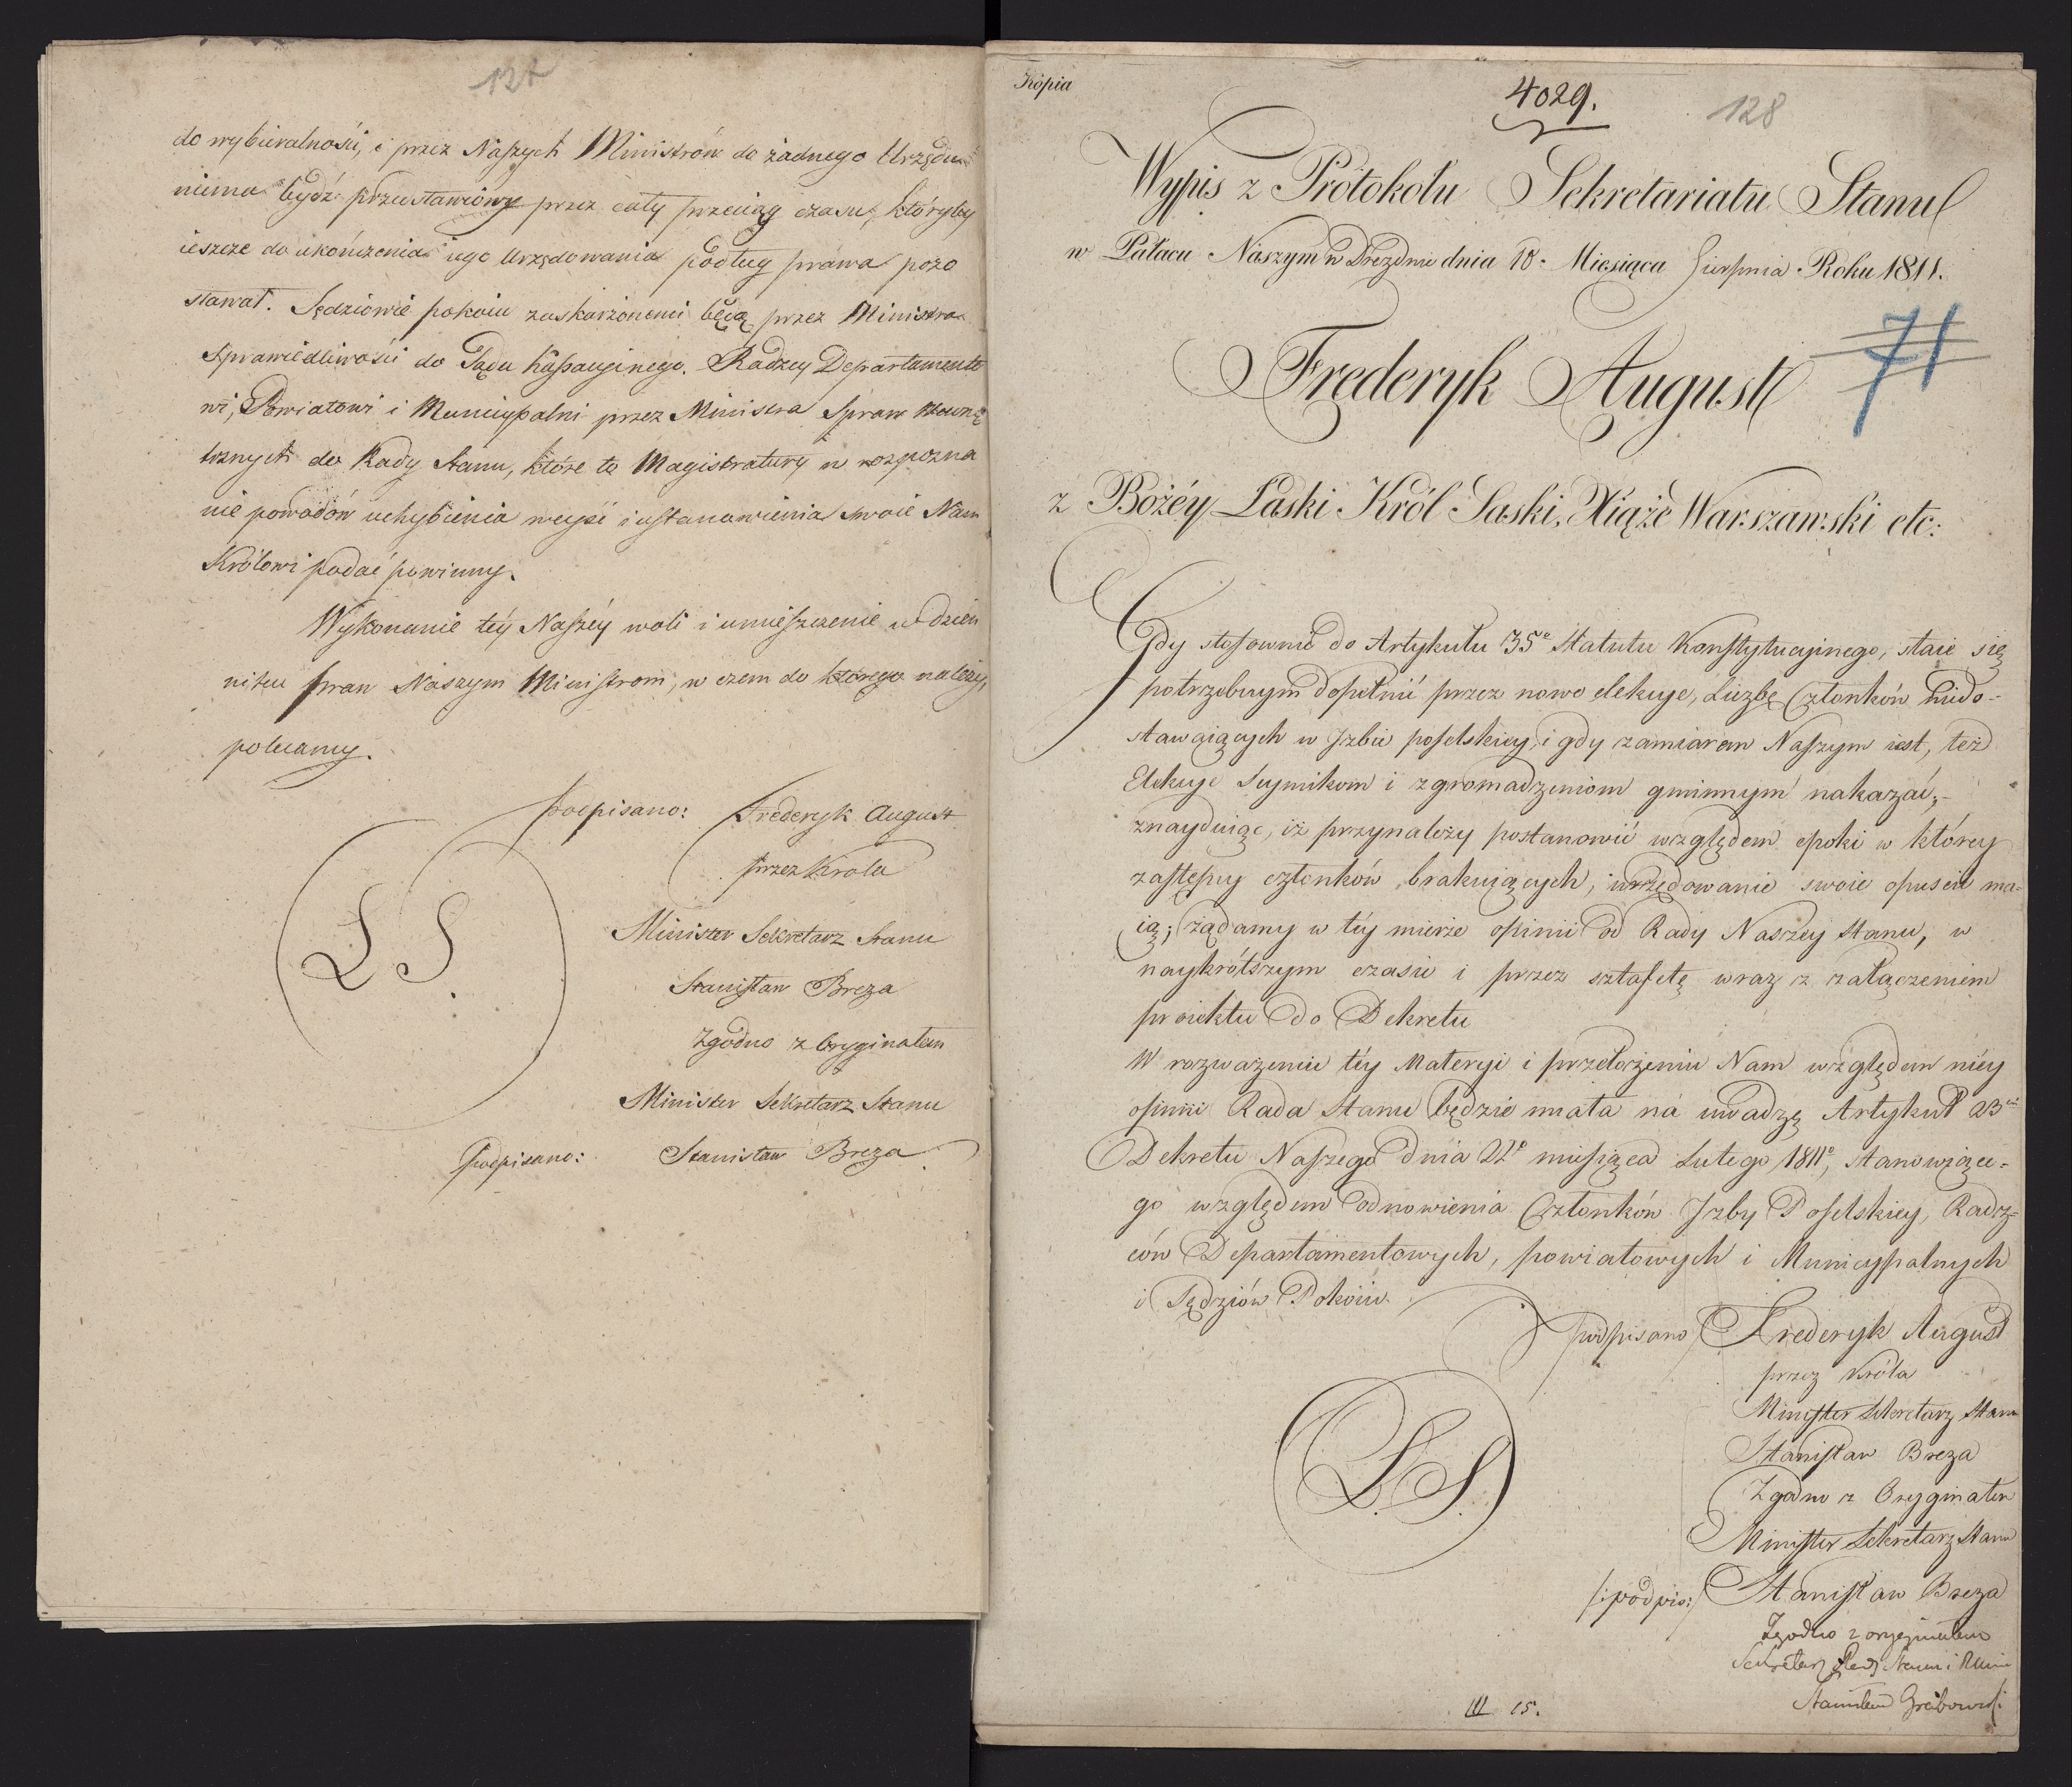 127
do wybieralności, i przez Naszych Ministrów do żadnego Urzędu
niema bydź przedstawiony przez cały przeciąg czasu, któryby
ieszcze do ukończenia iego Urzędowania podług prawa pozo
stawał. Sędziowie pokoiu zaskarżonemi będą przez Ministra
Sprawiedliwości do Sądu Kassacyinego. Radzcy Departamento
wi, Powiatowi i Municypalni przez Ministra Spraw Wewnę
trznych do Rady Stanu, które to Magistratury w rozpozna
nie powodów uchybienia weyść i ustanowienia swoie Nam
Królowi podać powinny.
Wykonanie téy Naszéy woli i umieszczenie w dzien
niku praw Naszym Ministrom, w czem do którego należy,
polecamy.
podpisano: Frederyk August
przez Króla
Minister Sekretarz Stanu
Stanisław Breza
Zgodno z Oryginałem
Minister Sekretarz Stanu
podpisano: Stanisław Breza
L S.
Kópia
4029.
128
Wypis z Protokołu Sekretariatu Stanu
w Pałacu Naszym w Dreznie dnia 18. Miesiąca Sierpnia Roku 1811.
71
Frederyk August
z Bożéy Łaski Król Saski, Xiąże Warszawski etc:
Gdy stosownie do Artykułu 35º Statutu Konstytucyinego, staie się
potrzebnym dopełnić przez nowe elekcye, Liczbę Członków niedo-
stawaiących w Izbie poselskiey, i gdy zamiarem Naszym iest, też
Elekcye Seymikom i zgromadzeniom gminnym nakazać,-
znayduiąc, iż przynależy postanowić względem epoki w którey
zastępcy członków brakuiących, urzędowanie swoie opuścić ma-
ią; żądamy w téy mierze opinii od Rady Naszey Stanu, w
naykrótszym czasie i przez sztafetę wraz z załączeniem
proiektu do Dekretu
W rozważeniu téy Materyi i przełożeniu Nam względem niéy
opinii Rada Stanu będzie miała na uwadzę Artykuł 23ci
Dekretu Naszego dnia 22º miesiąca Lutego 1811º, Stanowiące-
go względem odnowienia Członków Izby Poselskiey, Radz-
ców Departamentowych, powiatowych i Municypalnych
i Sędziów Pokoiu.
podpisano Frederyk August
przez Króla
Minister Sekretarz Stanu
Stanisław Breza
Zgodno z Oryginałem
Minister Sekretarz Stanu
/:podpis:/ Stanisław Breza
L. S.
Zgodno z oryginałem
Sekretarz Rady Stanu i Mini
Stanisław Grabowski
III 15.